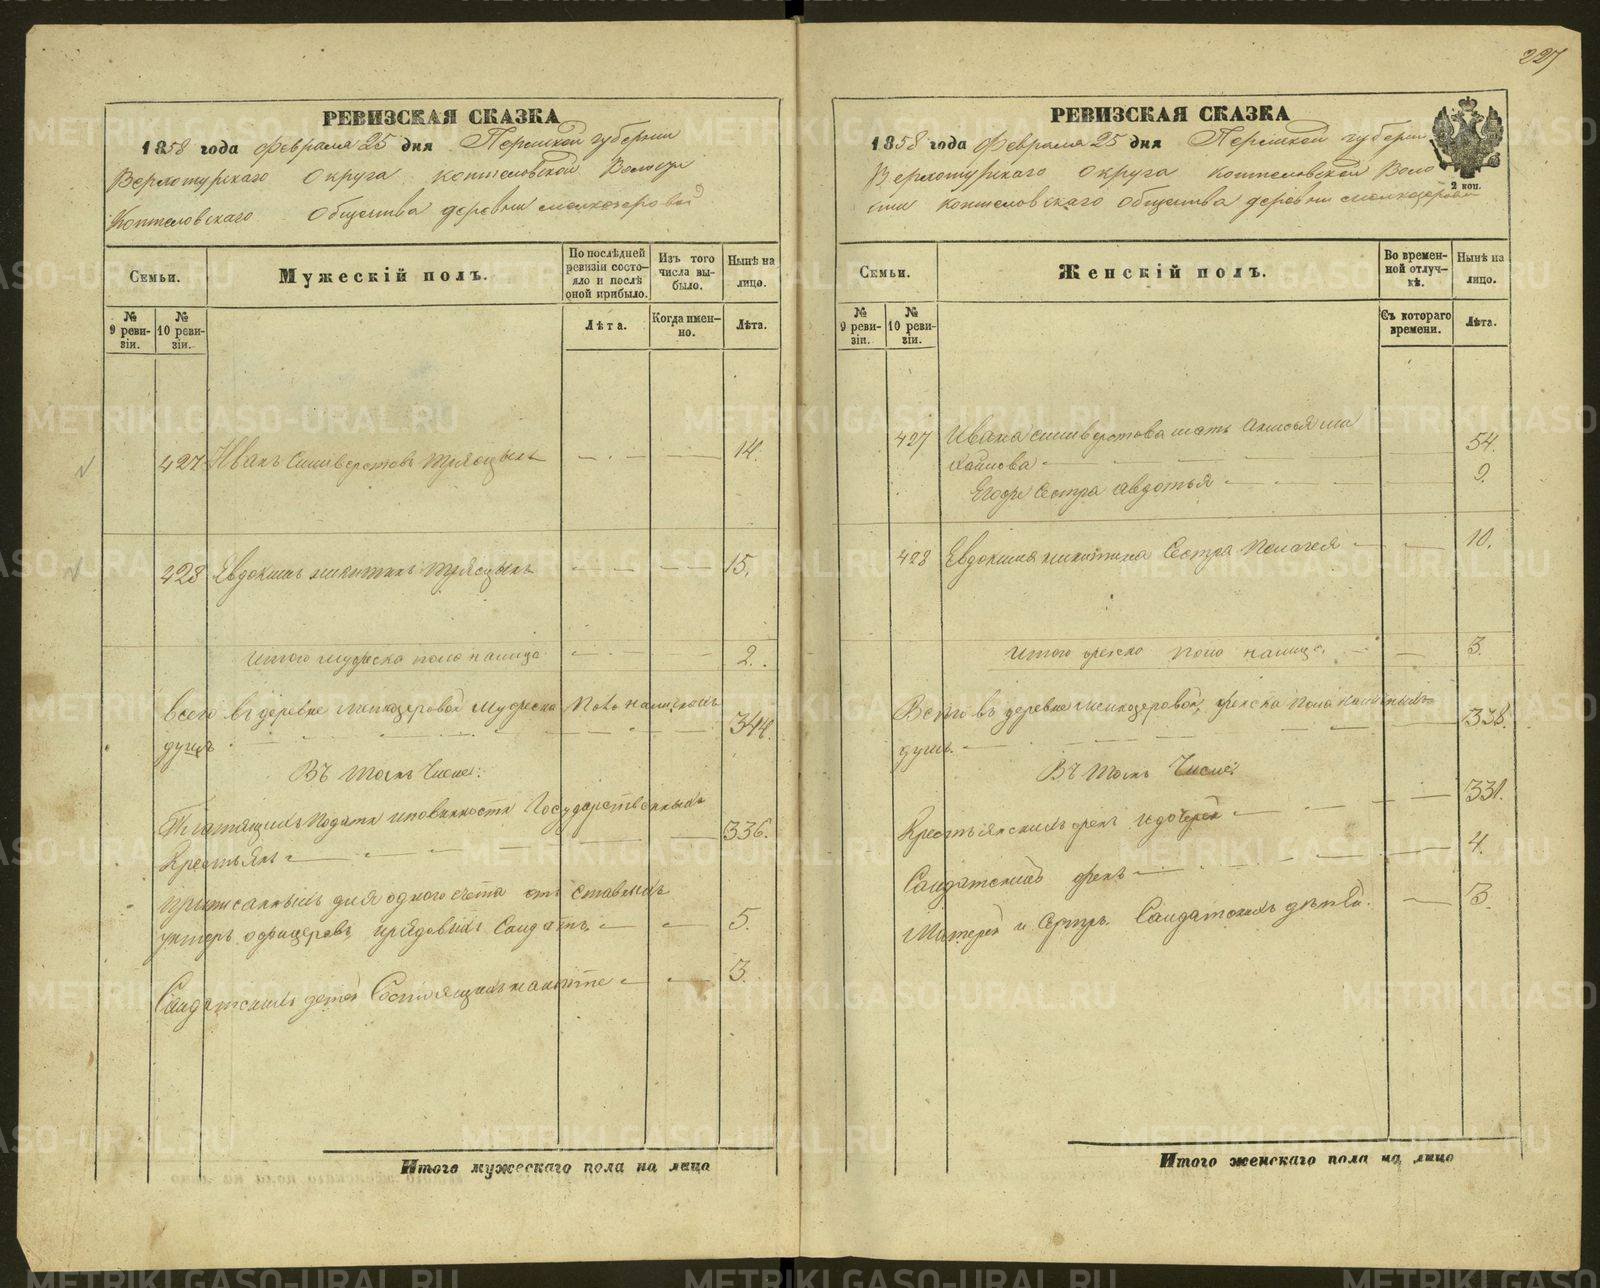 227
РЕВИЗСКАЯ СКАЗКА
1858 года Февраля 25 дня Пермской губернии
Верхотурскаго Округа Коптеловской Волости
Коптеловскаго Общества деревни Мелкозеровой
Семьи.
Мужескій полъ.
По послѣдней ревизіи состояло и послѣ оной прибыло.
Изъ того числа выбыло.
Нынѣ на лицо.
№ 9 ревизіи.
№ 10 ревизіи.
Лѣта.
Когда именно.
Лѣта.
427 Иванъ Силиверстовъ Трясцынъ 14.
428 Евдокимъ Никитинъ Трясцынъ 15.
Итого мужеска пола налицо 2.
Всего въ деревне Мелкозеровой мужеска пола наличныхъ
душъ 344.
Въ томъ числе:
Платящихъ подати и повинности Государственныхъ
Крестьянъ 336.
Приписанныхъ для одного счета отставныхъ
унтеръ офицеровъ и рядовыхъ Солдатъ 5.
Солдатскихъ детей Состоящихъ 3.
Итого мужескаго пола на лицо
РЕВИЗСКАЯ СКАЗКА
1858 года Февраля 25 дня Пермской губерни
Верхотурскаго Округа Коптеловской Воло
сти Коптеловскаго Общества деревни Мелкозеровой
2 коп.
Семьи.
Женскій полъ.
Во временной отлучкѣ.
Нынѣ на лицо.
№ 9 ревизіи.
№ 10 ревизіи.
Съ котораго времени.
Лѣта.
427 Ивана Силиверстова мать Анисья
54.
Его сестра Авдотья 9.
428 Евдокима Никитина Сестра Пелагея 10.
Итого женска пола налицо 3.
Всего въ деревне Мелкозеровой женска пола наличныхъ
душъ 338.
Въ томъ Числе
Крестьянскихъ женъ и дочерей 331.
Солдатскихъ женъ 4.
Матерей и Сестръ Солдатскихъ детей. 3.
Итого женскаго пола на лицо
METRIKI.GASO-URAL.RU